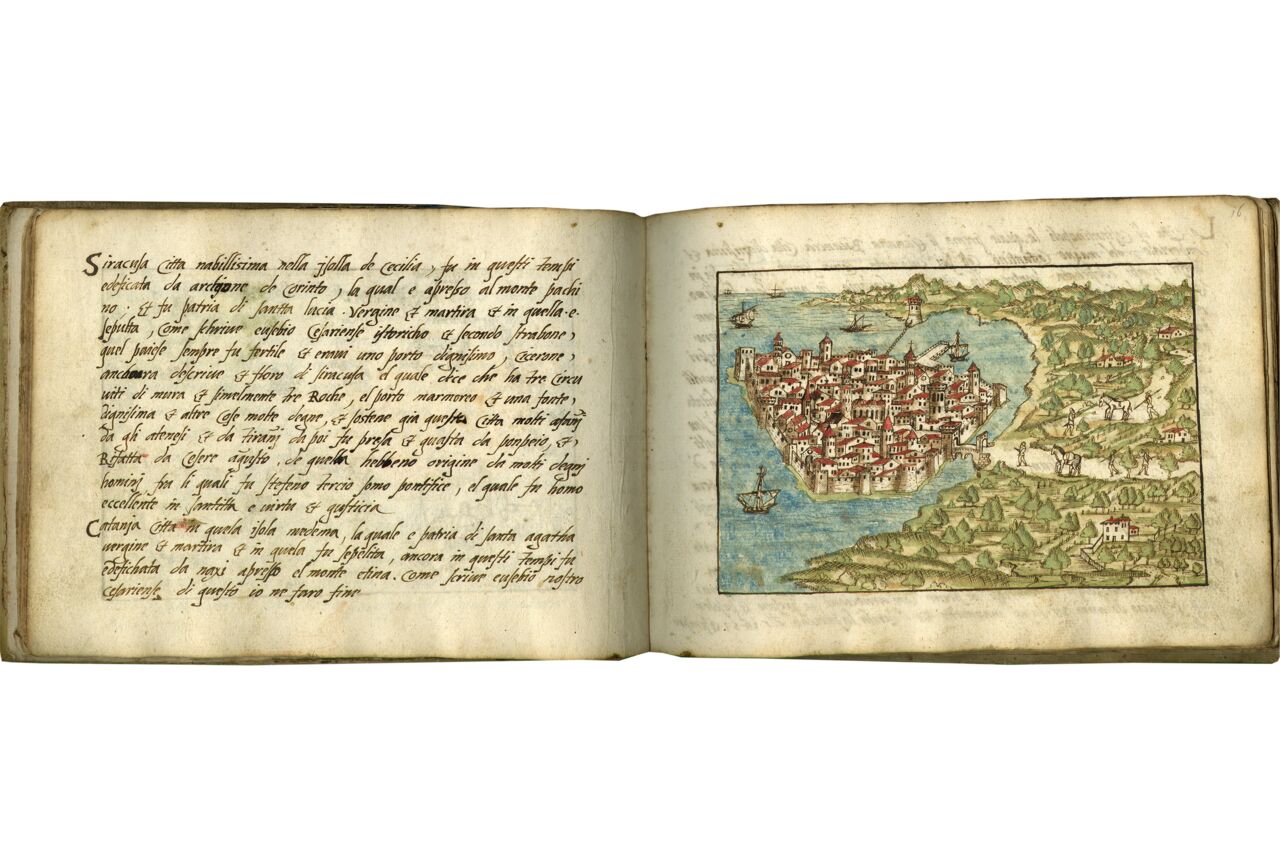 Siracusa Citta nabilissima nella Isolla de Cecilia, fu in questi tempi
edeficata da archione de Corinto, la qual e apresso al monte pachi
no. et fu patria di santta lucia. Vergine et martira et in quella e.
sepulta, Come schrive eusebio Cesariense istoricho et secondo strabone,
quel paiese sempre fu fertile et eravi uno porto dignissimo, Cicerone,
anchora descrive et floro di siracusa el quale dice che ha tre Circu
iti di mura et similmente tre Roche, el porto marmoreo et una fonte,
dignissima et altre Cose molte degne, et sostene gia questa Citta molti
da gli ateniesi et da tiranj da poi fu presa et guasta da ponpeio, et,
Rifatta da Cesere agusto, de quella hebbeno origine da molti degnj
hominj fra li quali fu stefeno tercio somo pontifice, el quale fu homo
eccellente in santita e virtu et gusticia
Catania Citta in quela isola medema, la quale e patria di santa agatha
vergine et martira et in quela fu sepelita, ancora in questi tempi fu
edefichata da naxi apresso el monte etina. Come scrive eusebio nostro
Cesariense di questo io ne faro fine
16